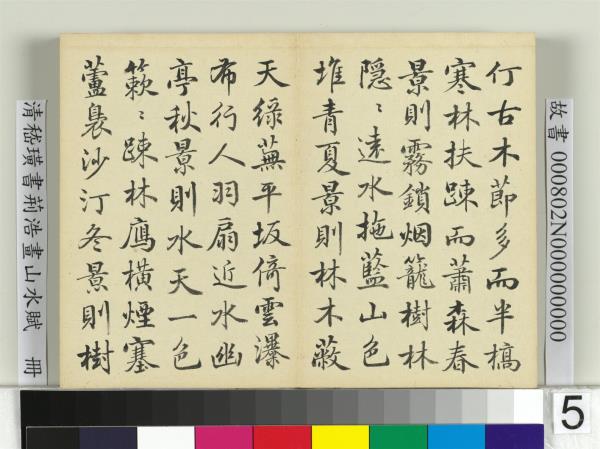 故書 000802N000000000
仃古木節多而半槁
寒林扶踈而蕭森春
景則霧鎖烟籠樹林
隐〻遠水拖藍山色
堆青夏景則林木蔽
天綠蕪平坂倚雲瀑
布行人羽扇近水幽
亭秋景則水天一色
簌〻踈林鴈橫煙塞
蘆裊沙汀冬景則樹
清嵇璜書荊浩畫山水賦 冊
5